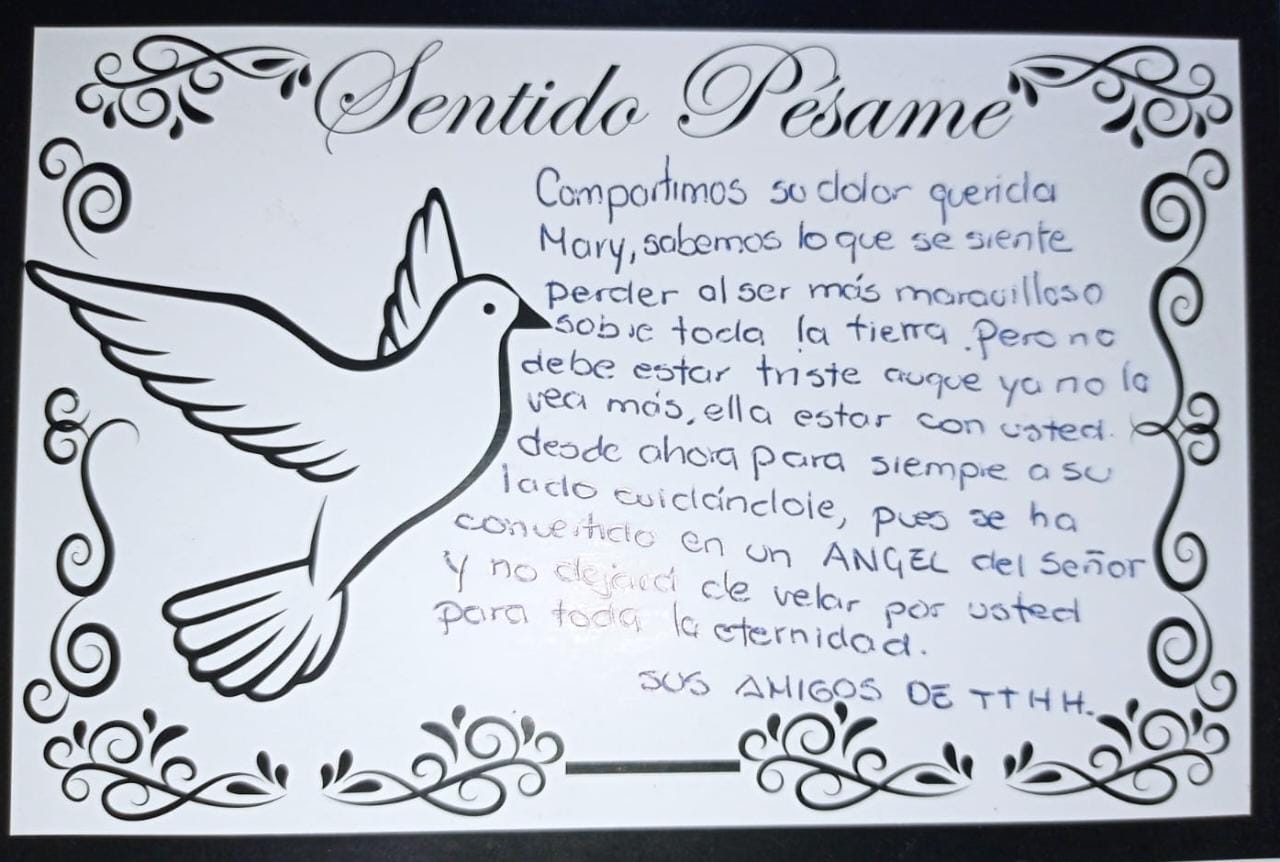 Sentido Pésame
Compartimos su dolor querida
Mary, sabemos lo que se siente
perder al ser más maravilloso
sobre toda la tierra. Pero no
debe estar triste auque ya no la
vea más, ella estar con usted.
desde ahora para siempre a su
lado cuidándole, pues se ha
convertido en un ANGEL del Señor
y no dejará de velar por usted
para toda la eternidad.
SUS AMIGOS DE TTHH.